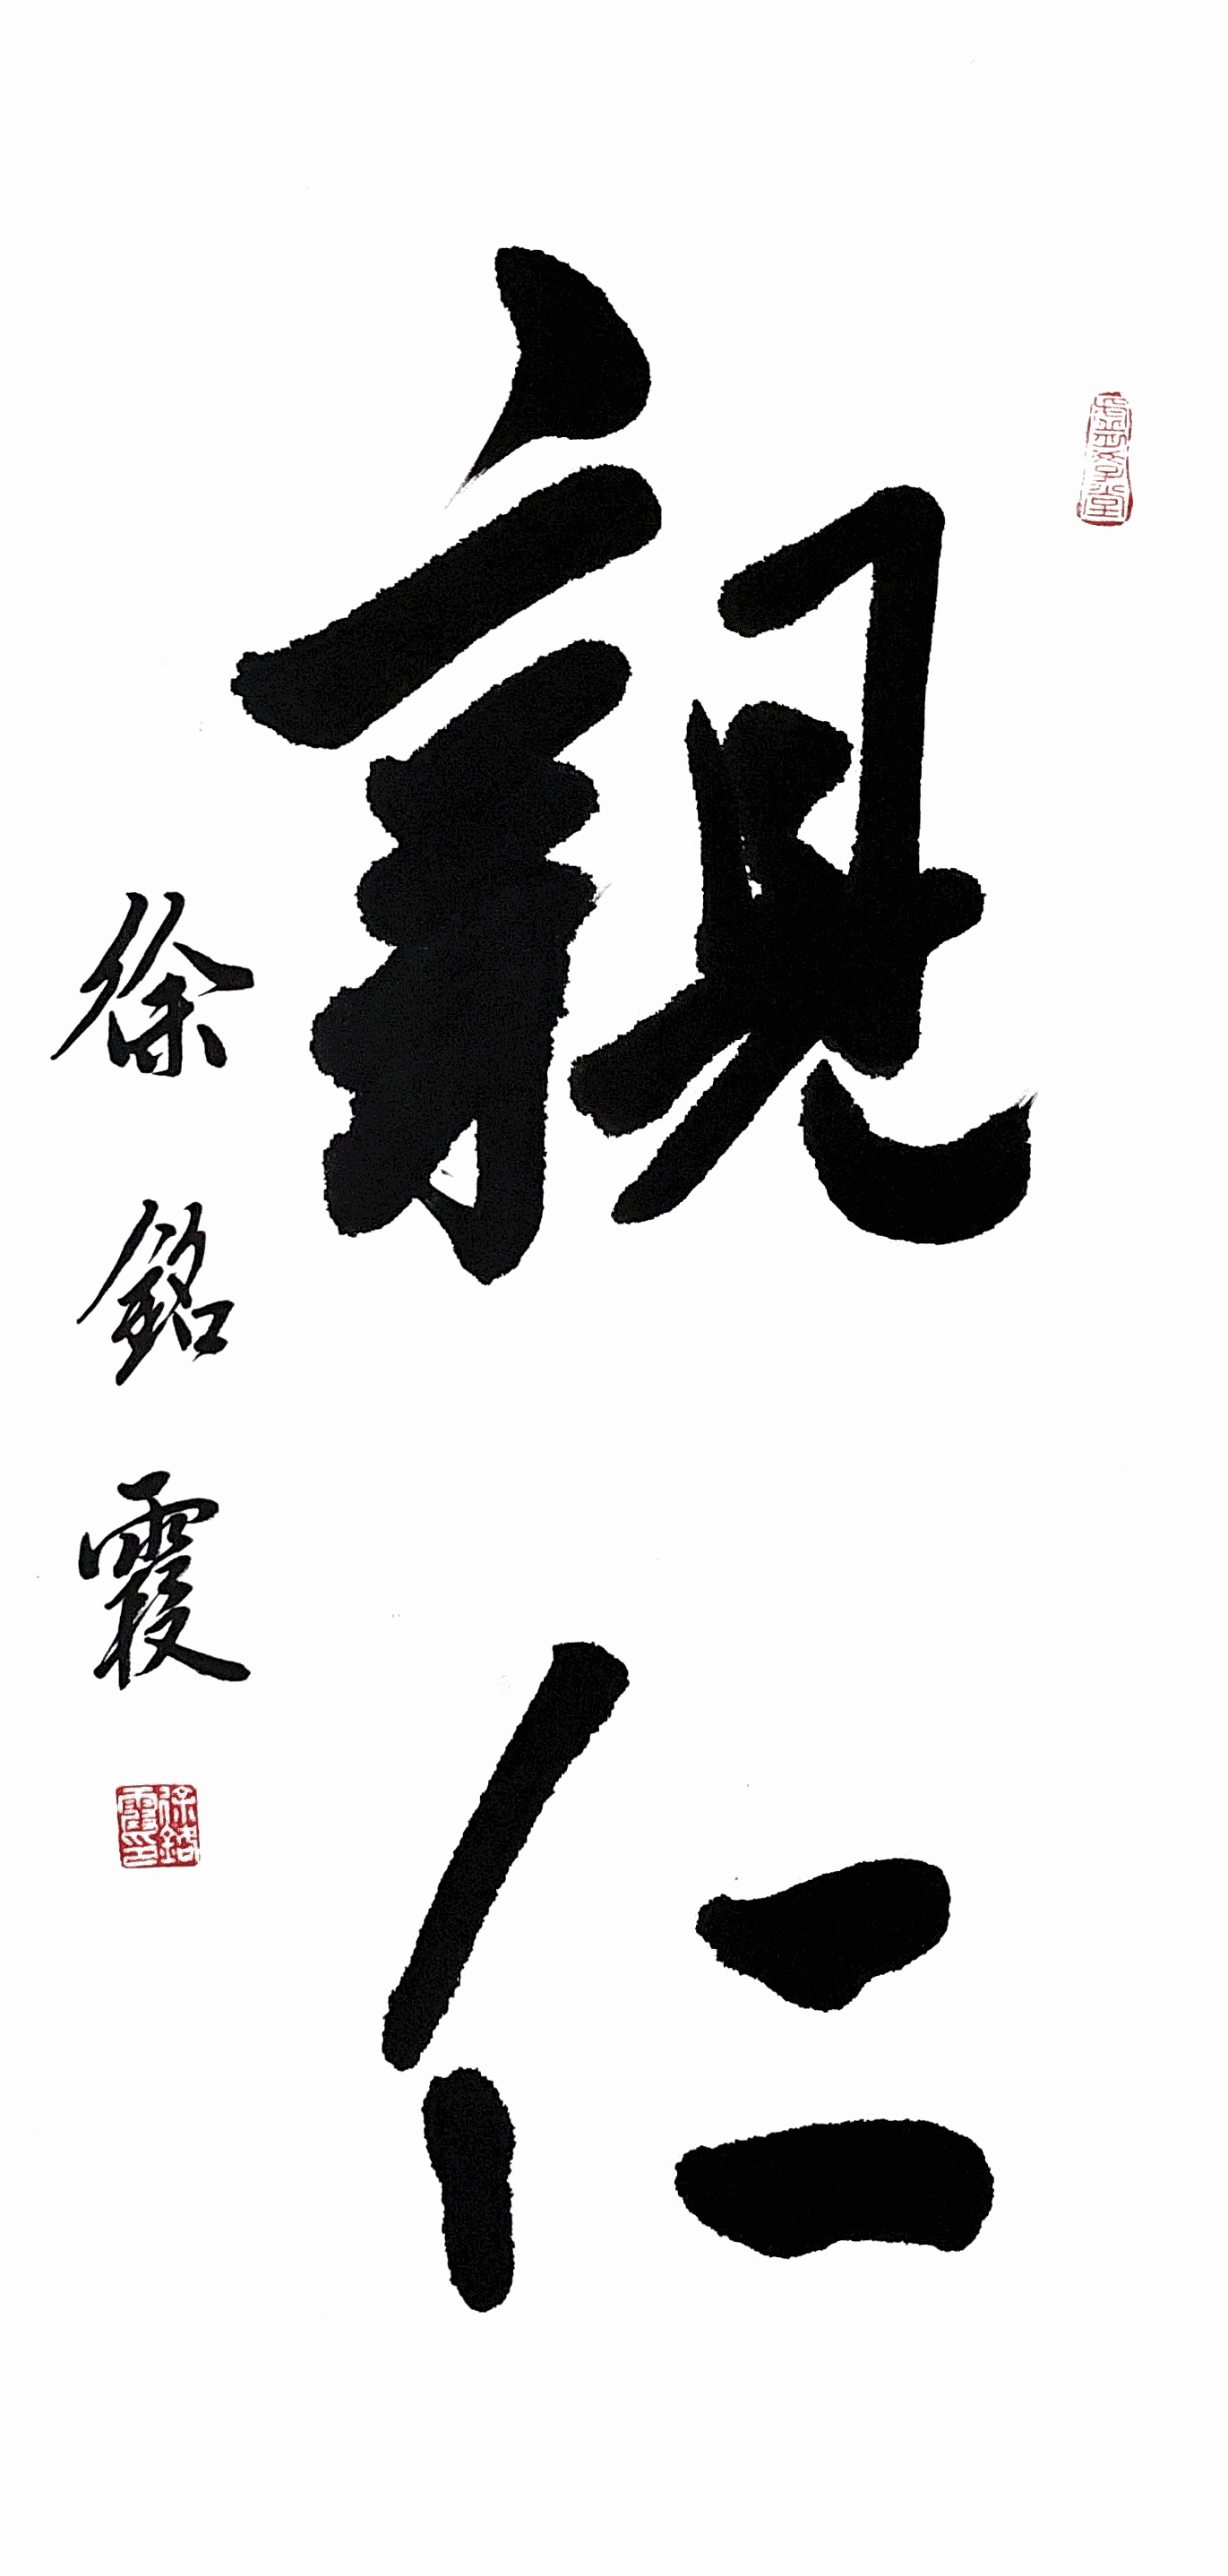 親仁
徐銘霞
徐銘霞印